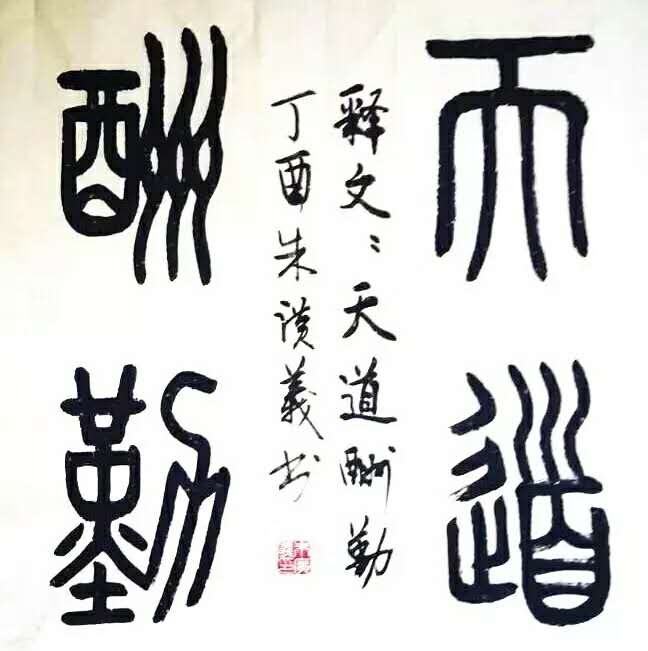 天道
释文：天道酬勤
丁酉朱漢義书
酬勤